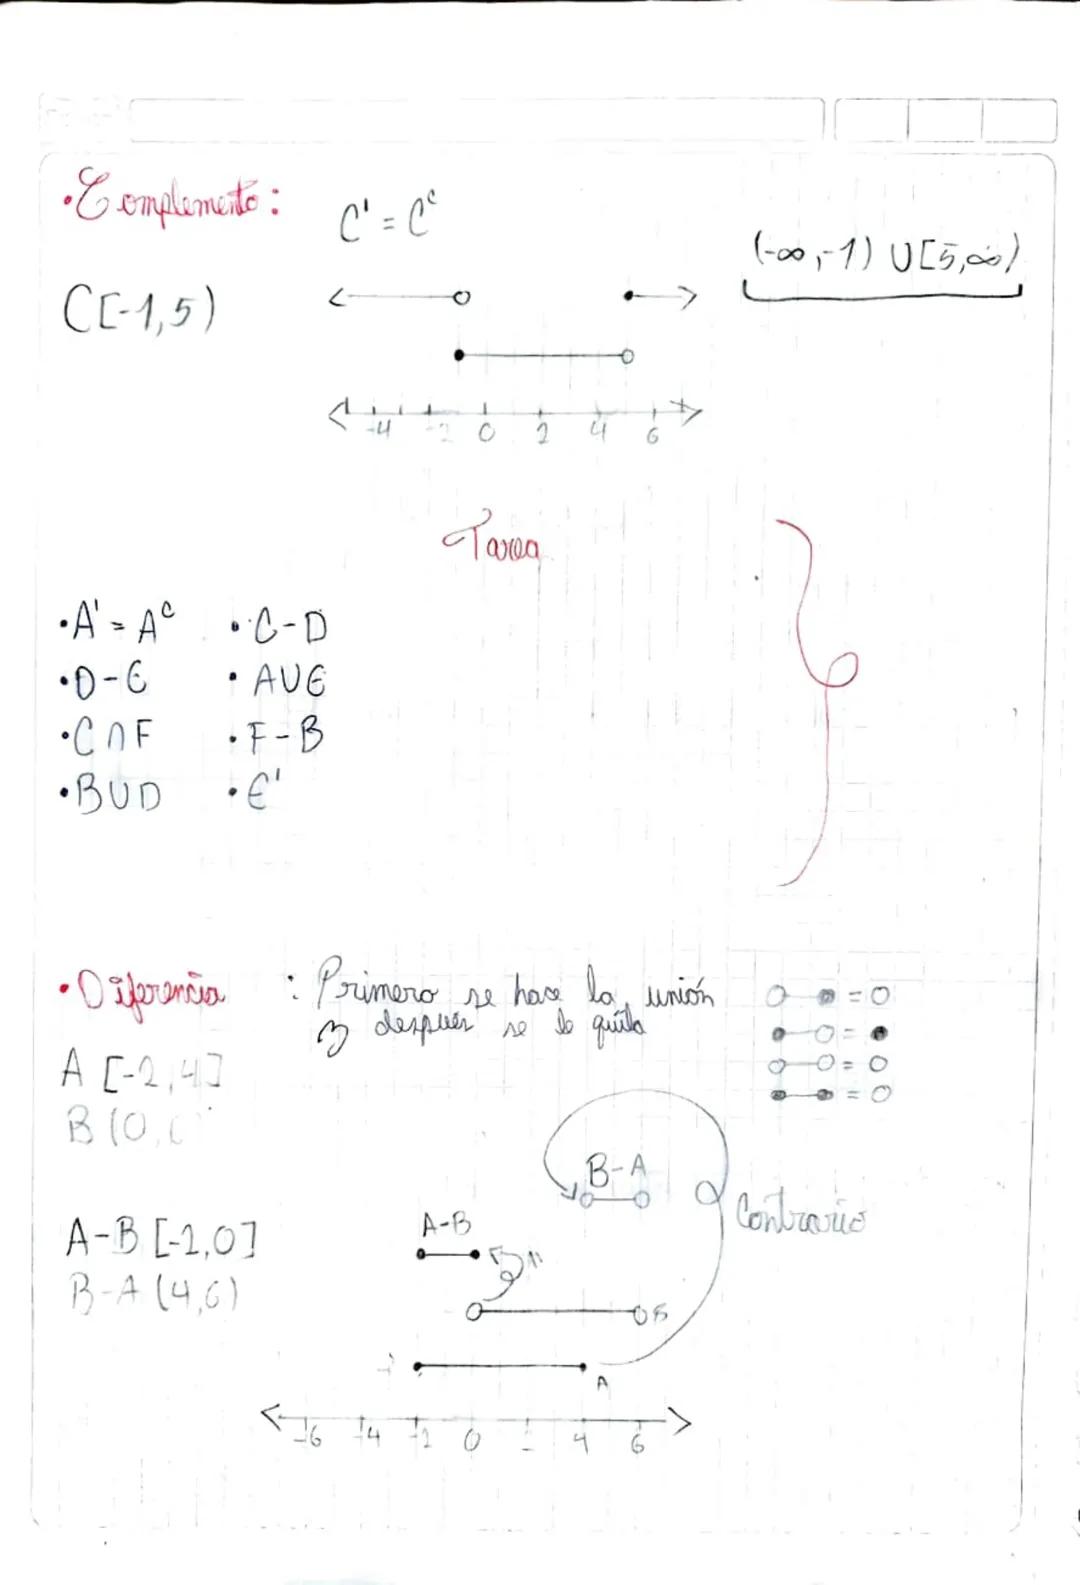 •Complemento:
C' = Cᶜ
(-∞,-1) U [5,∞)
C[-1,5)
-4 -2 0 2 4 6
Tarea
•A' = Aᶜ •C-D
•D-E • AUE
•C∩F •F-B
•BUD •E'
•Diferencia : Primero se hace la unión
y despues se le quita
○-●=○
●-○=●
○-○=○
●-●=○
A [-2,4]
B (0,
B-A
Contrario
A-B
A-B [-2,0]
B-A (4,6)
B
A
-6 -4 -2 0 4 6